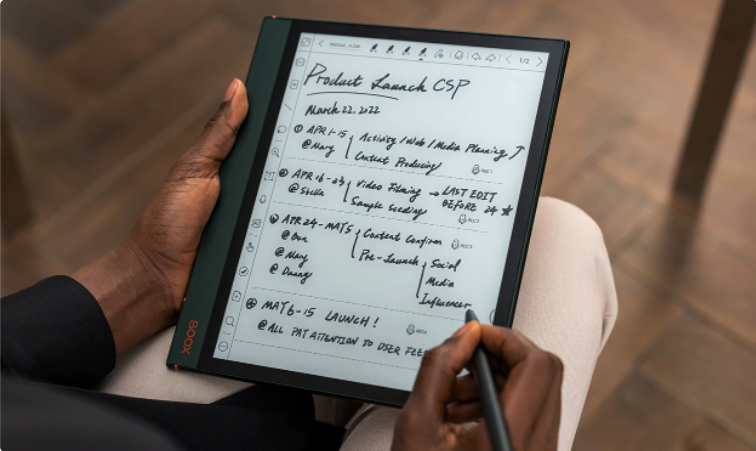 1/2
Product Launch CSP
March 22. 2022
① APR 1-15 Activity / Web / Media Planning
@Mary Content Producing
REC1
② APR 16-23 Video Filming → LAST EDIT
@Stella Sample Seeding BEFORE 24 ★
REC2
③ APR 24-MAY 5 Content Confirm REC3
@Ben Pre-Launch Social
@Mary Media
@Duang Influencer
④ MAY 6-15 LAUNCH! REC4
@ALL PAY ATTENTION TO USER FEE
BOOX